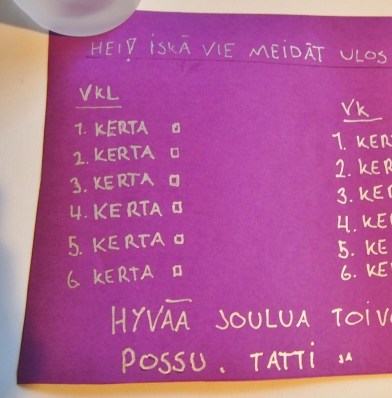 HEI! ISKÄ VIE MEIDÄT ULOS
VKL
1. KERTA
2. KERTA
3. KERTA
4. KERTA
5. KERTA
6. KERTA
VK
1. KER
2. KER
3. KER
4. KE
5. KE
6. KE
HYVÄÄ JOULUA TOIV
POSSU. TATTI JA